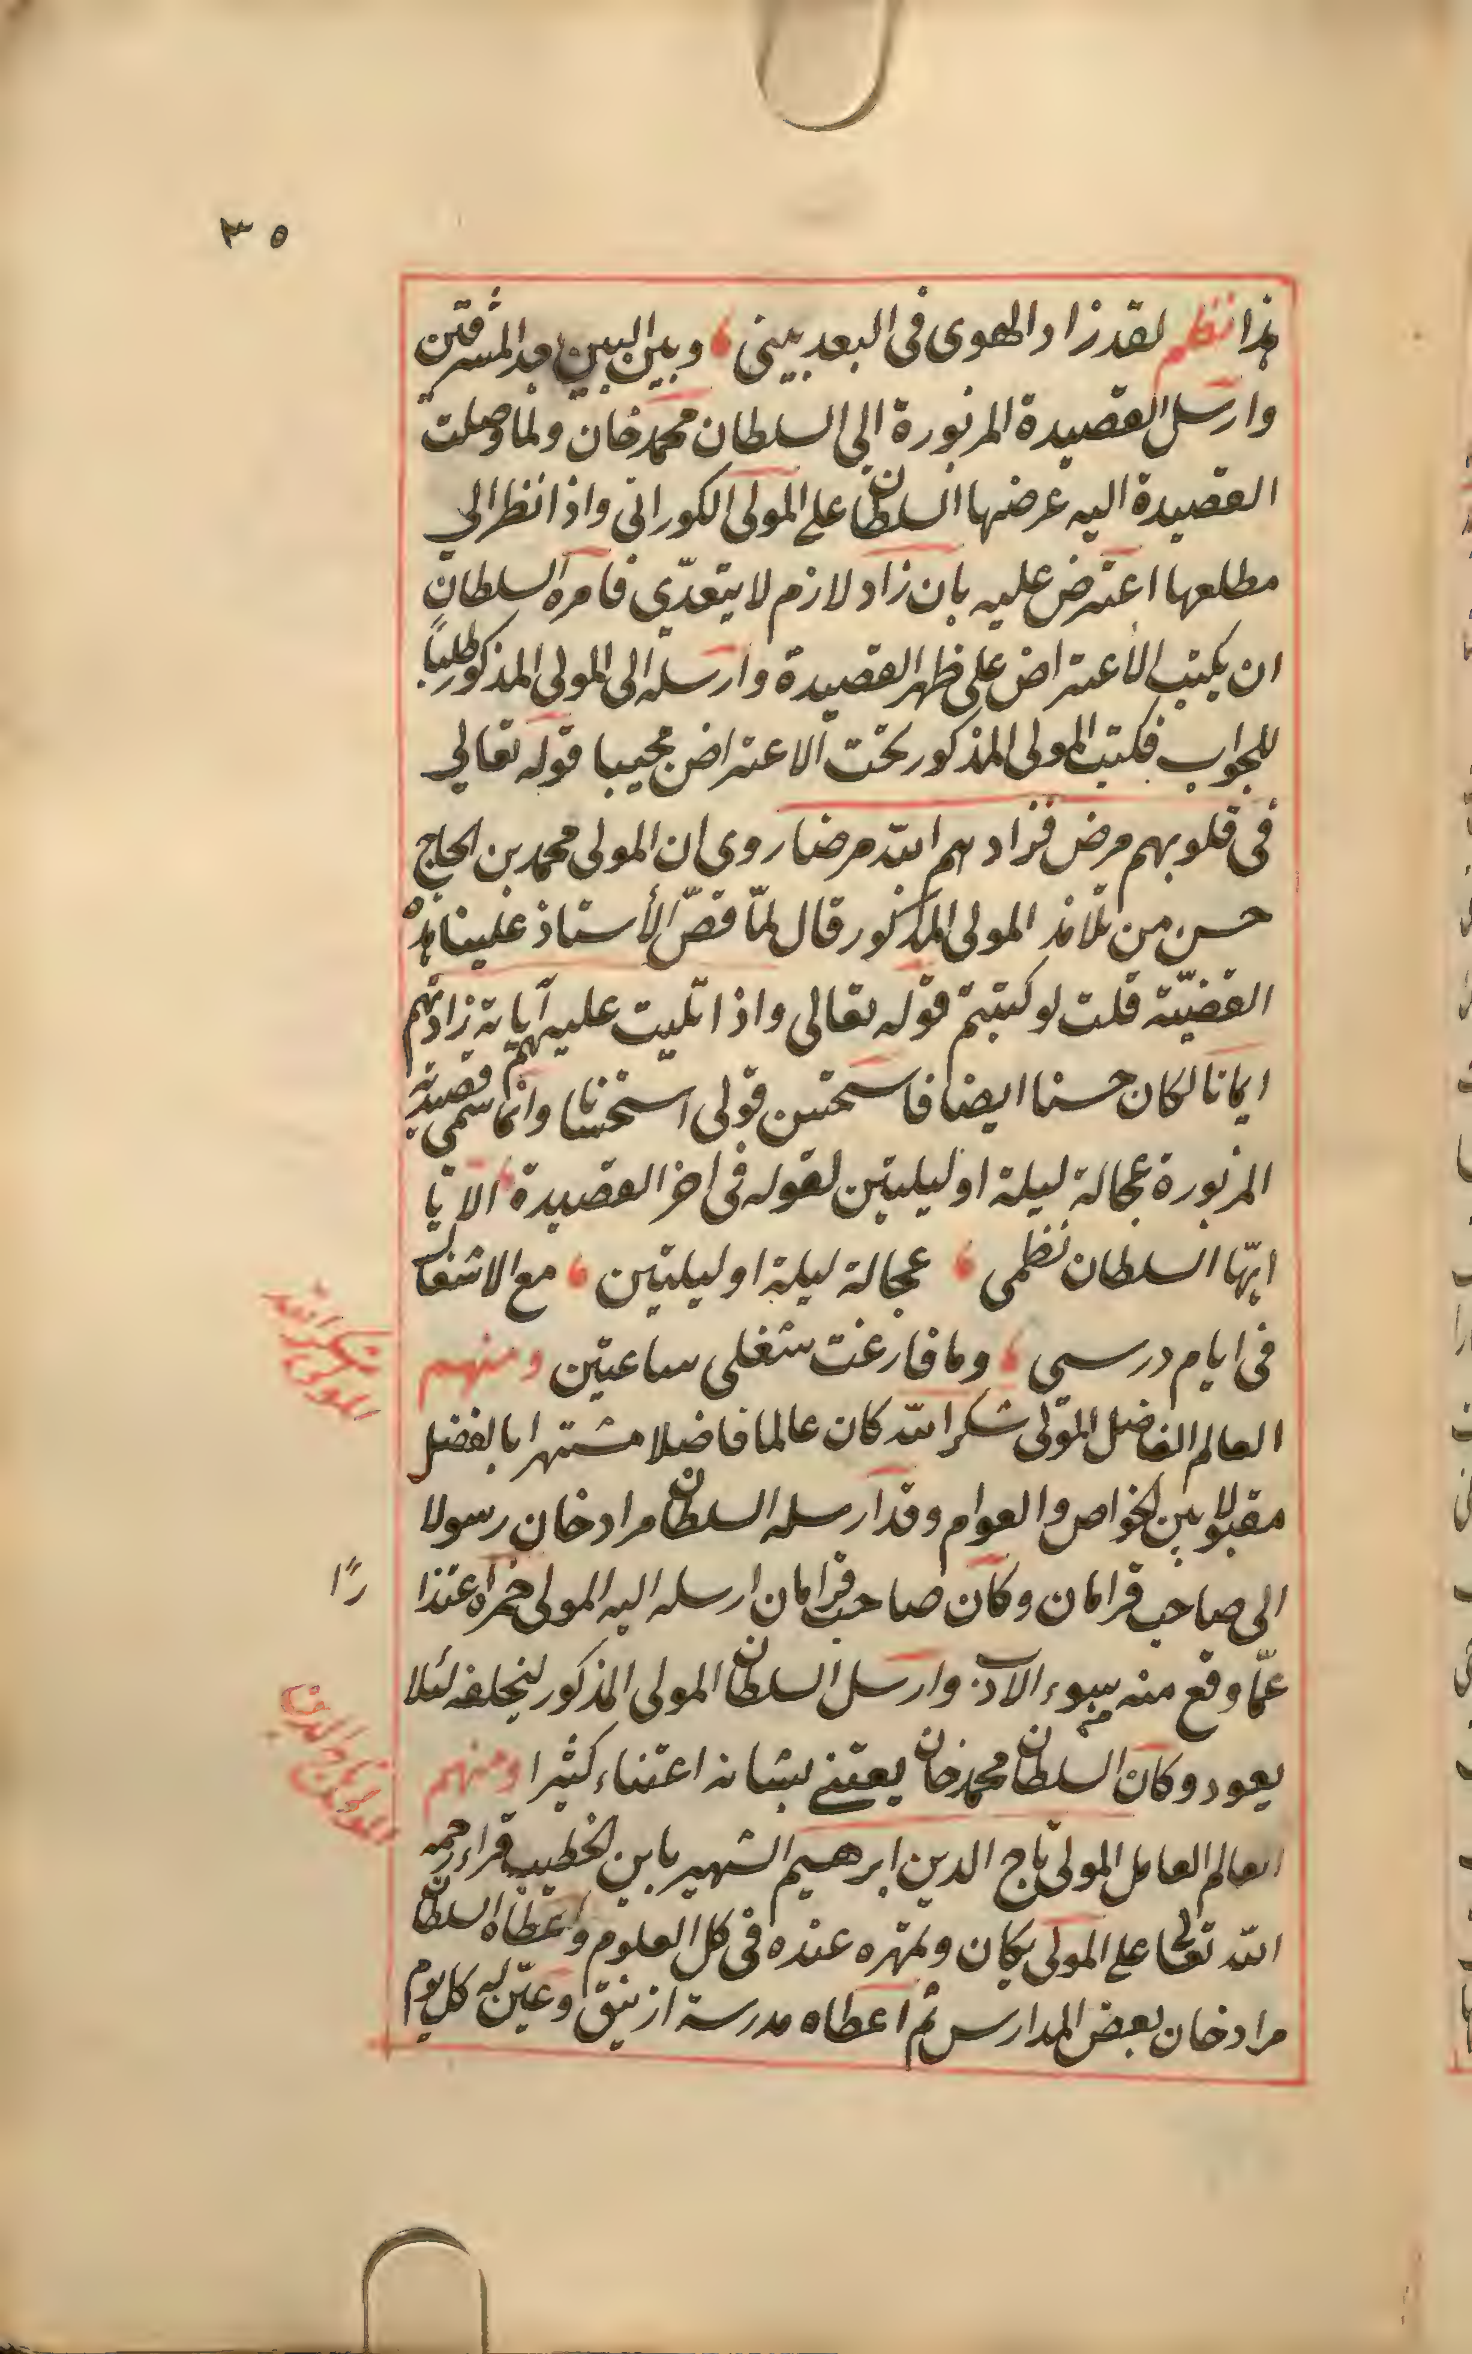 ٣٥
هذا نظم لقد زاد الهوى في البعد بيني ، وبين البين بعد المشرقين
وارسل القصيدة المزبورة الى السلطان محمد خان ولما وصلت
القصيدة اليه عرضها السلطان على المولى الكوراني واذا نظر الى
مطلعها اعترض عليه بان زاد لازم لا يتعدّى فامره السلطان
ان يكتب الأعتراض على ظهر القصيدة وارسله الى المولى المذكور طلبًا
للجواب فكتب المولى المذكور تحت الاعتراض مجيبا قوله تعالى
في قلوبهم مرض فزادهم الله مرضا روى ان المولى محمد بن الحاج
حسن من تلامذ المولى المذكور قال لمّا قصّ الأستاذ علينا هذه
القضيّة قلت لو كتبتم قوله تعالى واذا تليت عليهم آياته زادتهم
ايمانا لكان حسنا ايضا فاستحسن قولي استحسانا وانما سمى قصيدته
المزبورة عجالة ليلة او ليلتين لقوله في اخر القصيدة ، الا يا
ايّها السلطان نظمي ، عجالة ليلة او ليلتين ، مع الاشغال
في ايام درسي ، وما فارغت شغلي ساعتين ومنهم
العالم الفاضل المولى شكر الله كان عالما فاضلا مشتهرا بالفضل
مقبولا بين الخواص والعوام وقد ارسله السلطان مراد خان رسولا
الى صاحب قرامان وكان صاحب قرامان ارسله اليه المولى حمزه اعتذا
رًا
عمّا وقع منه سوء الادب وارسل السلطان المولى المذكور ليحلفه لئلا
يعود وكان السلطان محمد خان يعتني بشانه اعتناء كثيرا ومنهم
العالم العامل المولى تاج الدين ابرهيم الشهير بابن الخطيب قراء رحمه
الله تعالى على المولى يكان وتمهره عنده في كل العلوم واعطاه السلطان
مراد خان بعض المدارس ثم اعطاه مدرسة ازنيق وعيّن له كل يوم
شكر الله
المولى
المولى تاج الدين